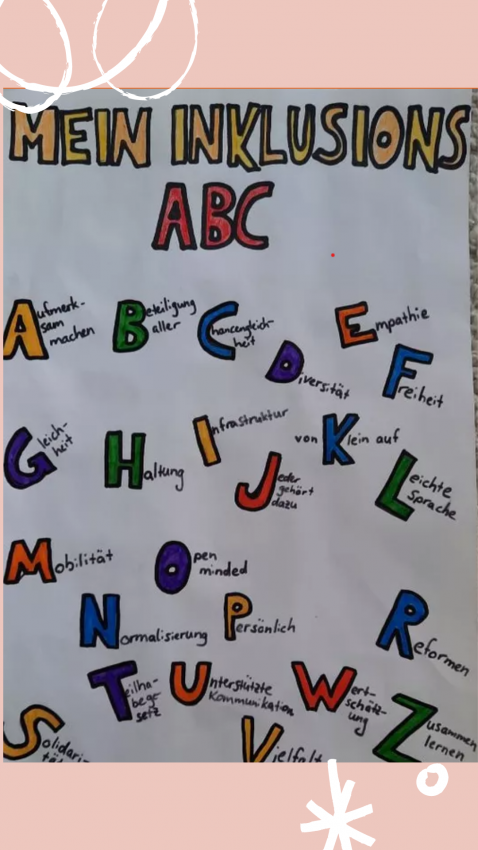 MEIN INKLUSIONS
ABC
Aufmerk-
sam
machen
Beteiligung
aller
Chancengleich-
heit
Diversität
Empathie
Freiheit
Gleich-
heit
Haltung
Infrastruktur
Jeder
gehört
dazu
von Klein auf
Leichte
Sprache
Mobilität
Open
minded
Normalisierung
Persönlich
Reformen
Teilha-
bege-
setz
Unterstützte
Kommunikation
Wert-
schätz-
ung
Zusammen
lernen
Solidari-
tät
Vielfalt